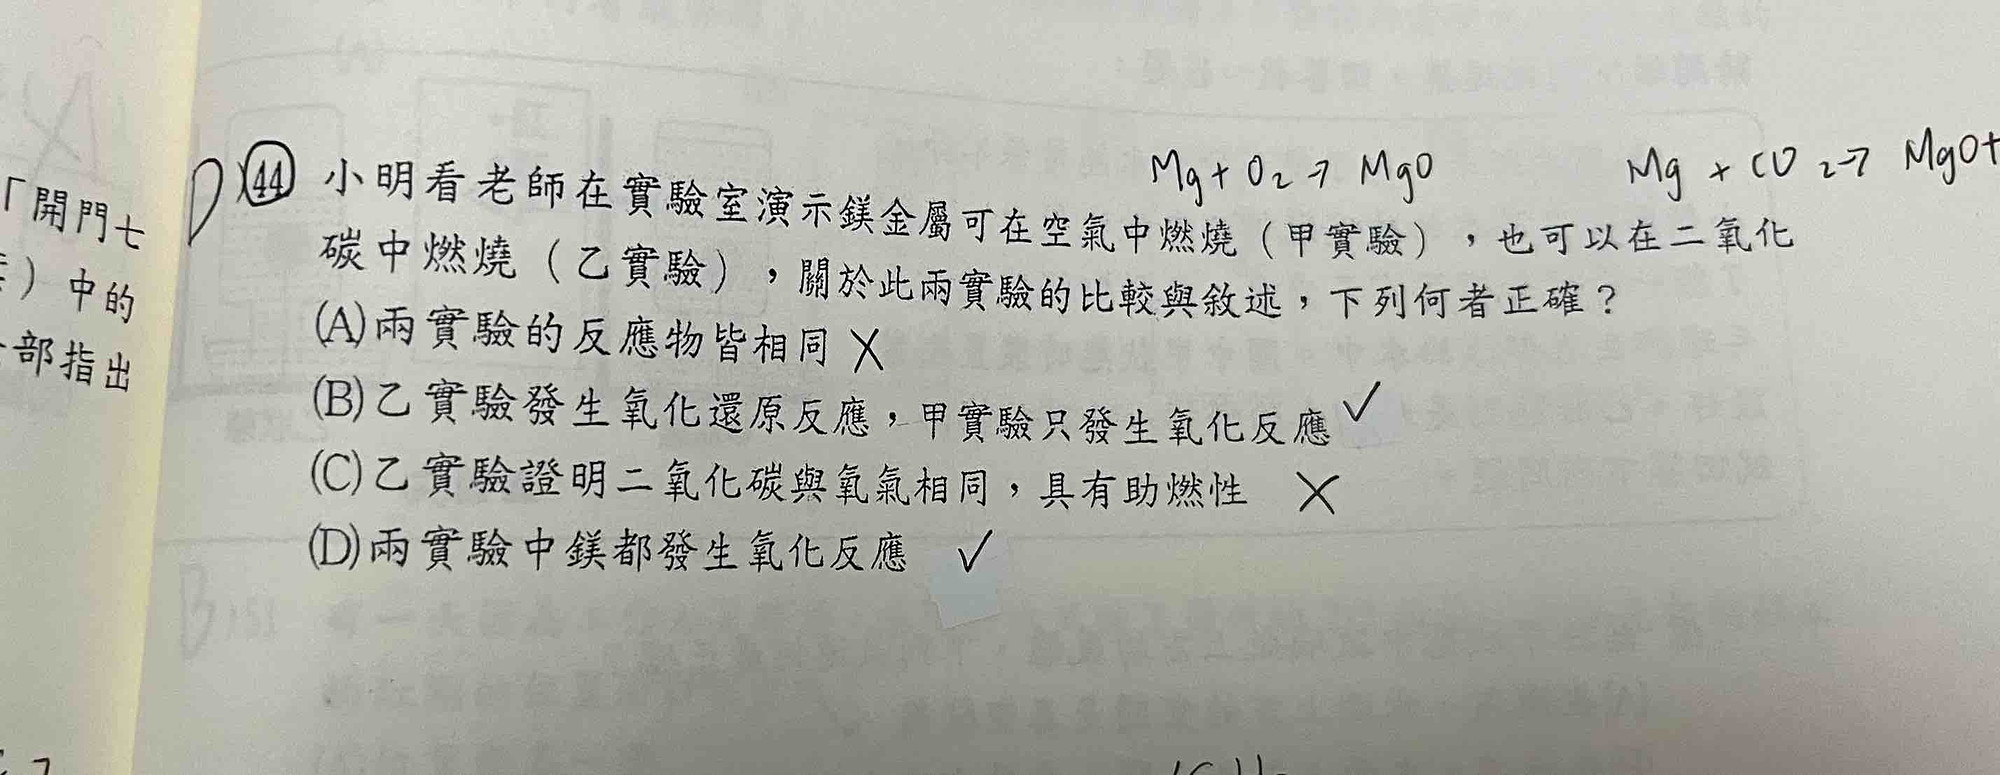 「開門七
）中的
部指出
D 44 小明看老師在實驗室演示鎂金屬可在空氣中燃燒（甲實驗），也可以在二氧化
Mg + O2 → MgO
Mg + CO2 → MgO+
碳中燃燒（乙實驗），關於此兩實驗的比較與敘述，下列何者正確？
(A)兩實驗的反應物皆相同 X
(B)乙實驗發生氧化還原反應，甲實驗只發生氧化反應 ✓
(C)乙實驗證明二氧化碳與氧氣相同，具有助燃性 X
(D)兩實驗中鎂都發生氧化反應 ✓